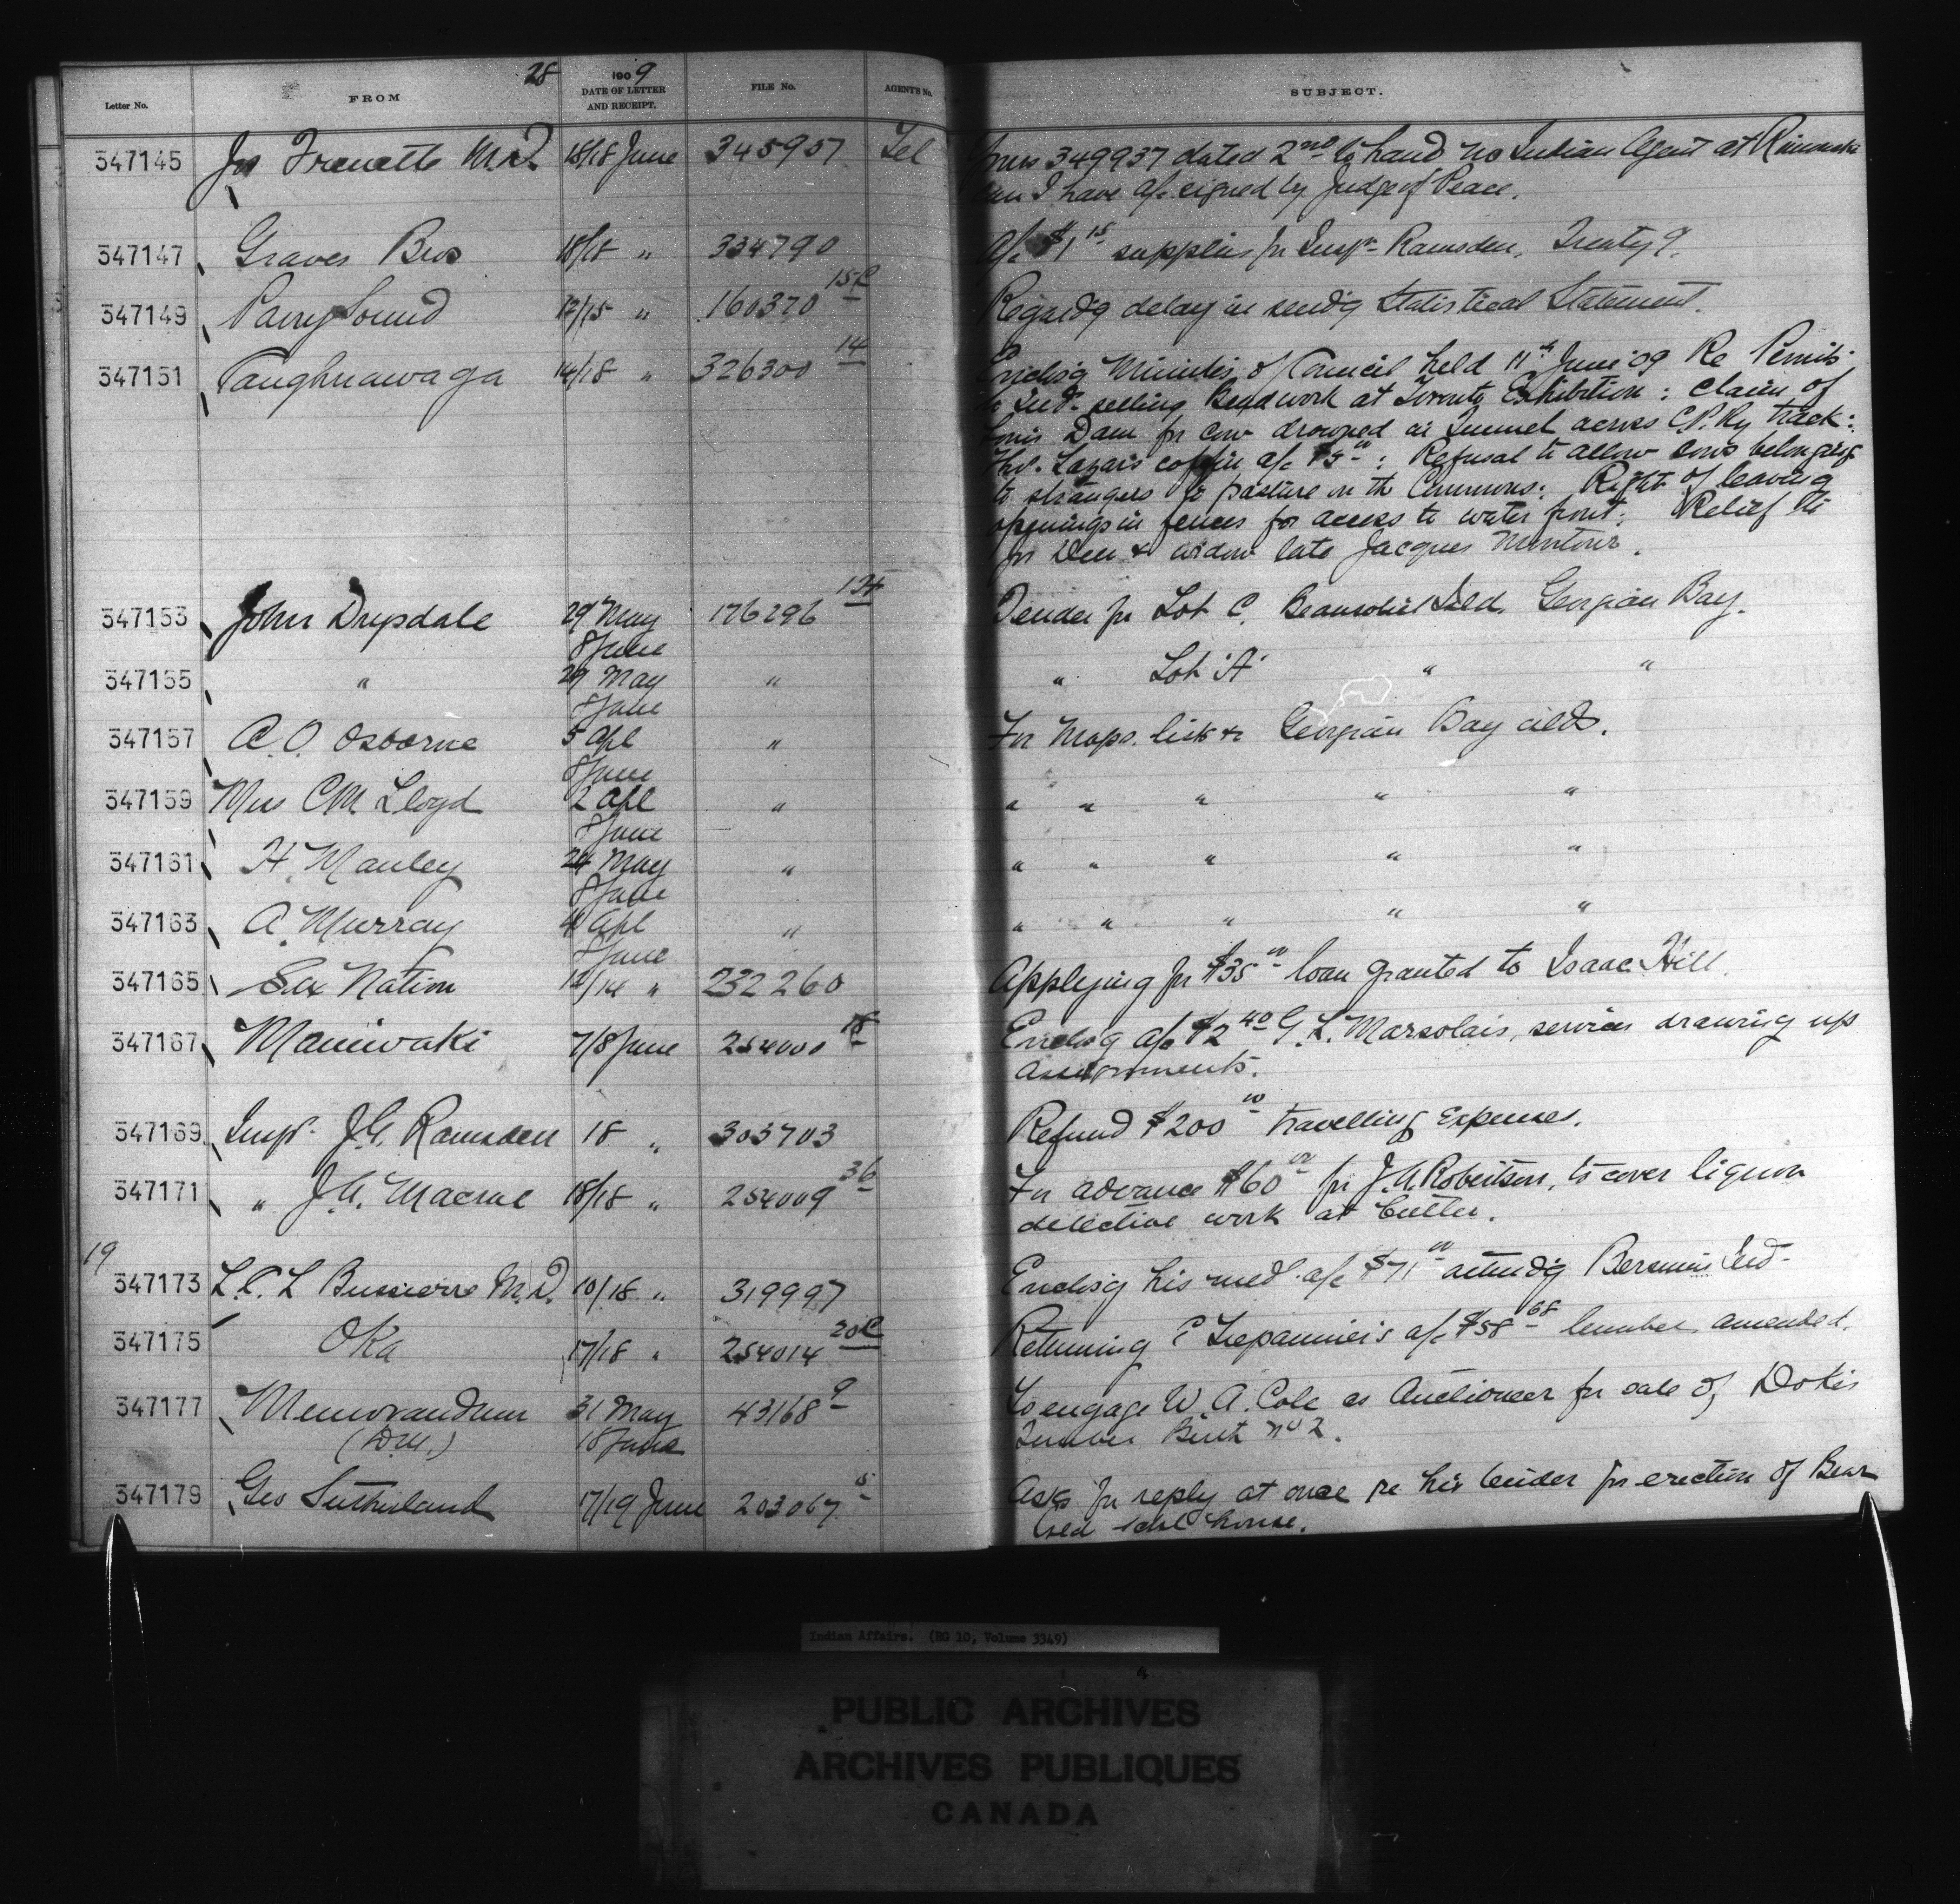 28
Letter No. FROM 1909 DATE OF LETTER AND RECEIPT. FILE No. AGENT'S No. SUBJECT.
347145 Jos Frenette M.D. 18/18 June 345957 Tel Yours 349937 dated 2nd to hand no Indian Agent at Rimouski
can I have a/c signed by Judge of Peace.
347147 Graves Bros 18/18 " 334790 A/c $1 15 supplies for Insp. Ramsden. Treaty 9.
347149 Parry Sound 12/15 " 160370 15C Regardg delay in sendg Statistical Statement.
347151 Caughnawaga 14/18 " 326300 14 Enclosg Minutes of Council held 11th June '09 Re Permits
to Inds selling Beadwork at Toronto Exhibition: Claim of
Louis Dam for cow drowned in Tunnel across C.P. Ry track:
Thos. Lazar's coffin a/c $5 00: Refusal to allow cows belonging
to strangers to pasture on the Commons: Right of leaving
openings in fences for access to water front: Relief
for widow late Jacques Montour.
347153 John Drysdale 29 May 8 June 176296 12A Tender for Lot C. Beausoliel Isld. Georgian Bay.
347155 " 29 May 8 June " " Lot "A" " "
347157 A. O. Osborne 5 Apl 8 June " For maps. lists &c Georgian Bay islds.
347159 Mrs CM Lloyd 2 Apl 8 June " " " " " "
347161 H. Manley 24 May 8 June " " " " " "
347163 A. Murray 4 Apl 8 June " " " " " "
347165 Six Nation 12/14 " 232260 Applying for $35 00 loan granted to Isaac Hill.
347167 Maniwaki 7/8 June 254000 18 Enclosg a/c $2 40 G. L. Marsolais, services drawing up
assignments.
347169 Insp. J.G. Ramsden 18 " 303703 Refund $200 00 travelling expenses.
347171 " J.A. Macrae 18/18 " 254009 36 For advance $60 00 for J.A. Robertson, to cover liquor
detective work at Cutler.
19
347173 L.C. L Bussierre M.D. 10/18 " 319997 Enclosg his med. a/c $71 00 attendg Bersimis Ind-
347175 Oka 17/18 " 254014 20C Returning C Trepannier's a/c $58 68 lumber amended.
347177 Memorandum 31 May 43168 9 To engage W. A. Cole as Auctioneer for sale of Dokis
(D.M.) 18 June Timber Berth No 2.
347179 Geo Sutherland 17/19 June 203067 5 Asks for reply at once re his tender for erection of Bear
Isld schl house.
Indian Affairs. (RG 10, Volume 3349)
PUBLIC ARCHIVES
ARCHIVES PUBLIQUES
CANADA